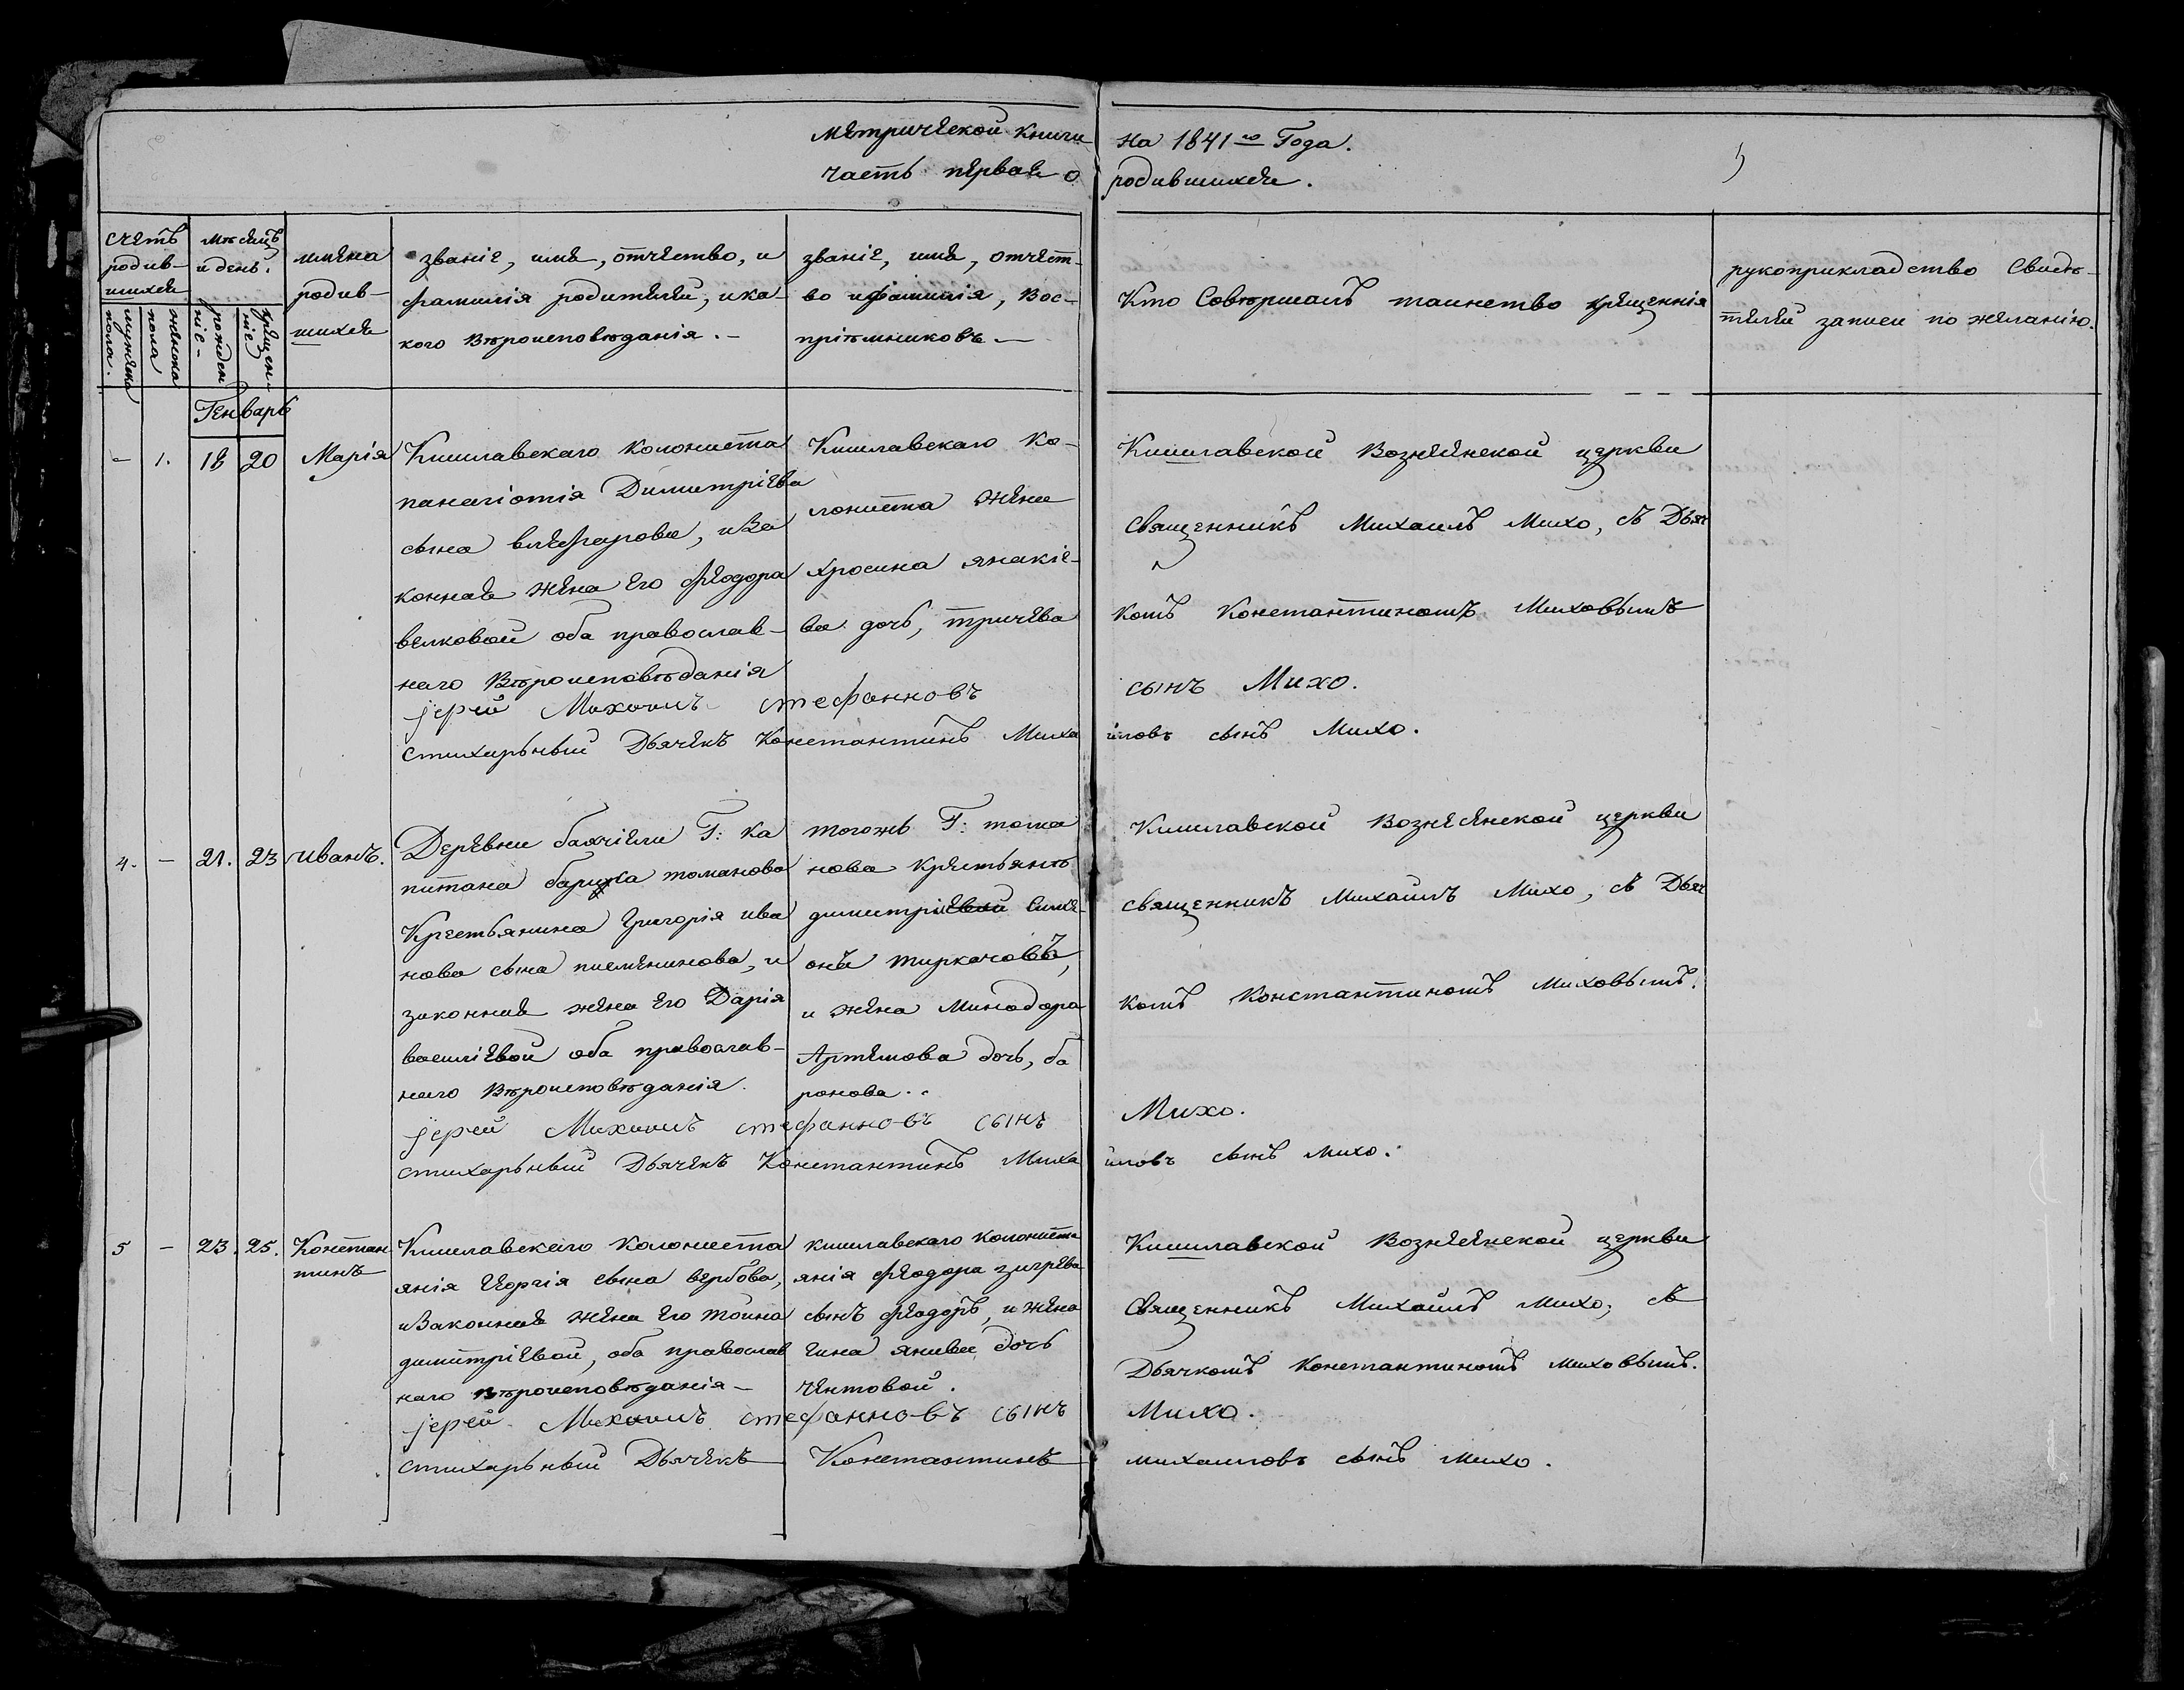 Метрической книги на 1841го Года.
часть первая о родившихся.
счетъ родив-шихся
мужеска пола.
женска пола
Месяцъ и день.
рожденіе-
крещен-ніе
имена родив-шихся
званіе, имя, отчество, и
фамилія родителей, и ка-
кого Вѣроисповѣданія.-
званіе, имя, отчест-
во и фамилія, Вос-
пріѣмниковъ.-
Кто Совѣршалъ таинство крещеннія
рукоприкладство Свидѣ-
телей записи по желанію.
Генварь
- 1. 18 20 Марія
Кишлавскаго колониста
панагіотія Димитріева
сына влефарова, и За
конная жена Его феодора
велковой оба православ-
наго Вѣроисповѣданія
Кишлавскаго ко-
лониста жена
хросина янакіе-
ва дочь, тричева
Кишлавской Вознесенской церкви
Священникъ Михаилъ Михо, съ Дьяч
комъ Константиномъ Миховымъ
іерей Михаилъ стефанновъ сынъ Михо.
стихарьный Дьячекъ Константинъ Миха иловъ сынъ Михо.
4. - 21. 23 иванъ.
Деревни баячіели Г: Ка
питана томанова
Крестьянина Григорія ива
нова сына писменинова, и
законная жена Его Дарія
василіевой оба православ-
наго Вѣроисповѣданія.
тогожъ Г: тома
нова крестьянъ
димитрі
онъ тиркачовъ,
и жена Минодора
Артемова дочь, ба
ранова..
Кишлавской Вознесенской церкви
священникъ Михаилъ Михо, съ Дьяч
комъ Константиномъ Миховымъ.
іерей Михаилъ стефанновъ сынъ Михо.
стихарьный Дьячекъ Константинъ Миха иловъ сынъ Михо.
5 - 23. 25. Констан
тинъ
Кишлавскаго колониста
янія Георгія сына вербова,
и Законная жена Его тоина
димитріевой, оба православ
наго вѣроисповѣданія-
кишлавскаго колониста
янія феодора
сынъ феодоръ, и жена
янива дочь
чентовой.
Кишлавской Вознесенской церкви
Священникъ Михаилъ Михо, съ
Дьячкомъ Константиномъ Миховымъ.
іерей Михаилъ стефанновъ сынъ Михо.
стихарьный Дьячекъ Константинъ михаиловъ сынъ Михо.